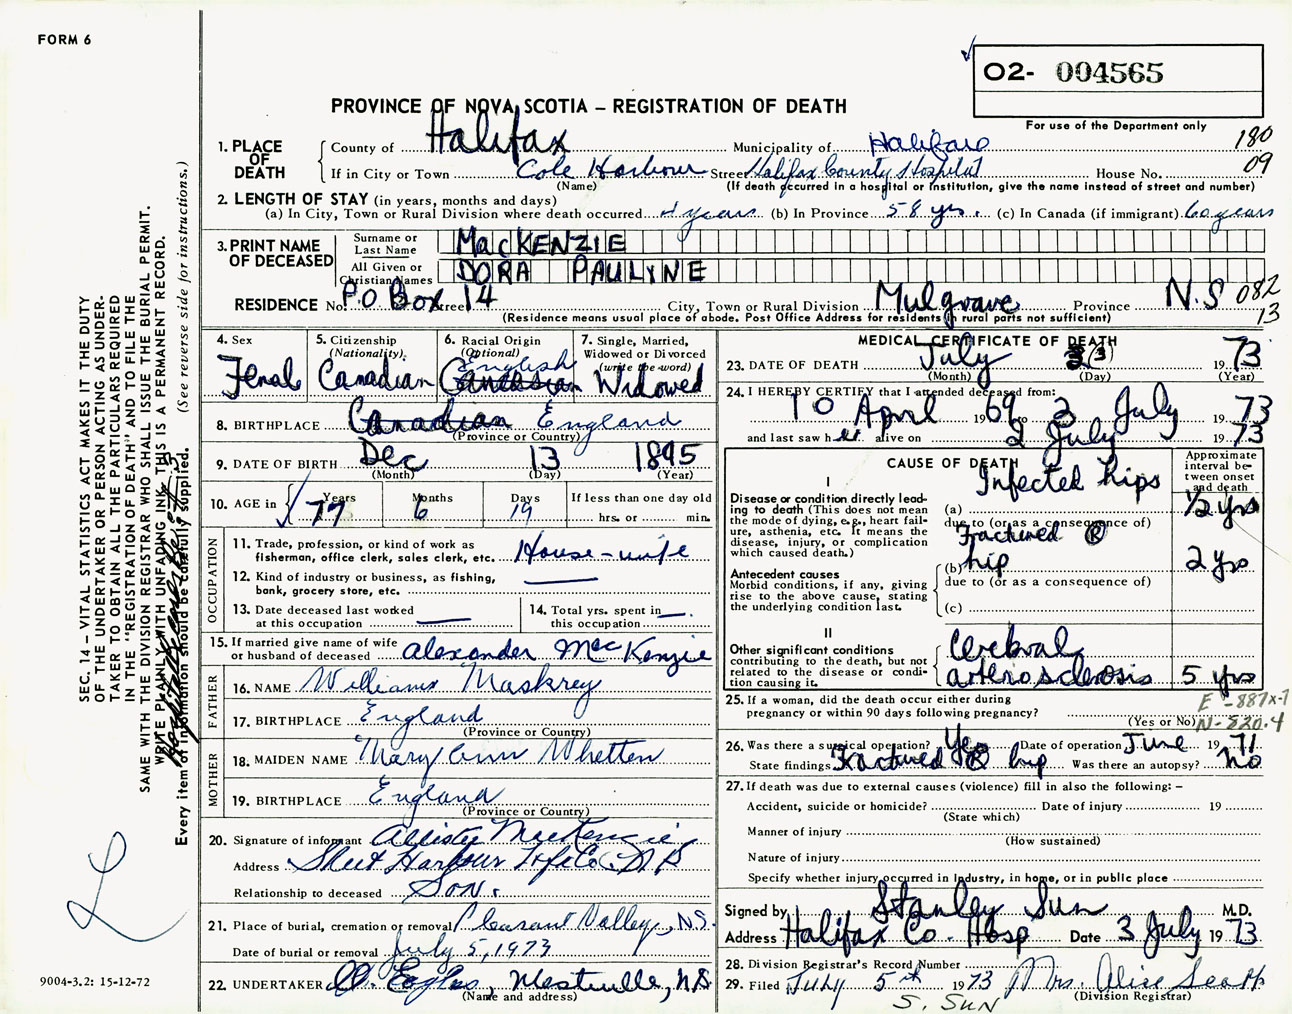 FORM 6
O2- 004565
PROVINCE OF NOVA SCOTIA – REGISTRATION OF DEATH
For use of the Department only
180
09
1. PLACE OF DEATH
County of Halifax Municipality of Halifax
If in City or Town Cole Harbour Street Halifax County Hospital House No.
(Name) (If death occurred in a hospital or institution, give the name instead of street and number)
2. LENGTH OF STAY (in years, months and days)
(a) In City, Town or Rural Division where death occurred 4 years (b) In Province 58 yrs. (c) In Canada (if immigrant) 60 years
3. PRINT NAME OF DECEASED
Surname or Last Name MacKENZIE
All Given or Christian Names DORA PAULYNE
RESIDENCE No. P.O Box Street 14 City, Town or Rural Division Mulgrave Province N.S
082
13
(Residence means usual place of abode. Post Office Address for residents in rural parts not sufficient)
4. Sex Female
5. Citizenship (Nationality) Canadian
6. Racial Origin (Optional) English
7. Single, Married, Widowed or Divorced (write the word) Widowed
8. BIRTHPLACE Canadian England
(Province or Country)
9. DATE OF BIRTH Dec 13 1895
(Month) (Day) (Year)
10. AGE in Years 77 Months 6 Days 19 If less than one day old hrs. or min.
OCCUPATION
11. Trade, profession, or kind of work as fisherman, office clerk, sales clerk, etc. House-wife
12. Kind of industry or business, as fishing, bank, grocery store, etc.
13. Date deceased last worked at this occupation
14. Total yrs. spent in this occupation
15. If married give name of wife or husband of deceased Alexander MacKenzie
FATHER
16. NAME Williams Maskrey
17. BIRTHPLACE England
(Province or Country)
MOTHER
18. MAIDEN NAME Mary Ann Whetten
19. BIRTHPLACE England
(Province or Country)
20. Signature of informant Allister MacKenzie
Address Sheet Harbour Hfx Co.
Relationship to deceased Son.
21. Place of burial, cremation or removal Pleasant Valley, N.S.
Date of burial or removal July 5, 1973
22. UNDERTAKER Eagles, Westville, N.S.
(Name and address)
MEDICAL CERTIFICATE OF DEATH
23. DATE OF DEATH July 3 (3) 1973
(Month) (Day) (Year)
24. I HEREBY CERTIFY that I attended deceased from:
10 April 1969 to 2 July 1973
and last saw her alive on 2 July 1973
CAUSE OF DEATH
Approximate interval between onset and death
I
Disease or condition directly leading to death (This does not mean the mode of dying, e.g., heart failure, asthenia, etc. It means the disease, injury, or complication which caused death.)
(a) Infected hips 1/2 yrs
due to (or as a consequence of)
Antecedent causes
Morbid conditions, if any, giving rise to the above cause, stating the underlying condition last.
(b) Fractured R hip 2 yrs
due to (or as a consequence of)
(c)
II
Other significant conditions contributing to the death, but not related to the disease or condition causing it.
Cerebral arteriosclerosis 5 yrs
25. If a woman, did the death occur either during pregnancy or within 90 days following pregnancy?
(Yes or No)
E-887X-7
N-820.4
26. Was there a surgical operation? Yes Date of operation June 1971
State findings Fractured R hip Was there an autopsy? No
27. If death was due to external causes (violence) fill in also the following: –
Accident, suicide or homicide? Date of injury 19
(State which)
Manner of injury
(How sustained)
Nature of injury
Specify whether injury occurred in industry, in home, or in public place
Signed by Stanley Sun M.D.
Address Halifax Co. Hosp Date 3 July 1973
28. Division Registrar's Record Number
29. Filed July 5th 1973 Mrs. Alice
(Division Registrar)
S. SUN
SEC. 14 – VITAL STATISTICS ACT MAKES IT THE DUTY
OF THE UNDERTAKER OR PERSON ACTING AS UNDER-
TAKER TO OBTAIN ALL THE PARTICULARS REQUIRED
IN THE "REGISTRATION OF DEATH" AND TO FILE THE
SAME WITH THE DIVISION REGISTRAR WHO SHALL ISSUE THE BURIAL PERMIT.
WRITE PLAINLY WITH UNFADING INK, THIS IS A PERMANENT RECORD.
Every item of information should be carefully supplied. (See reverse side for instructions.)
9004-3.2: 15-12-72